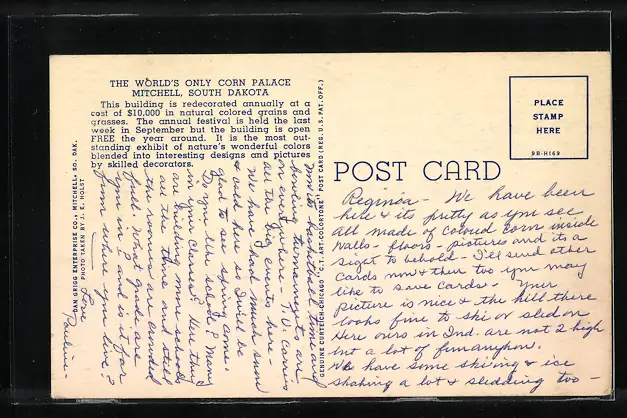 THE WORLD'S ONLY CORN PALACE
MITCHELL, SOUTH DAKOTA
This building is redecorated annually at a
cost of $10,000 in natural colored grains and
grasses. The annual festival is held the last
week in September but the building is open
FREE the year around. It is the most out-
standing exhibit of nature's wonderful colors
blended into interesting designs and pictures
by skilled decorators.
DAN GRIGG ENTERPRISE CO., MITCHELL, SO. DAK.
PHOTO TAKEN BY J. E. HOLST
GENUINE CURTEICH-CHICAGO "C.T. ART-COLORTONE" POST CARD (REG. U. S. PAT. OFF.)
POST CARD
PLACE
STAMP
HERE
9B-H169
Reginóa - We have been
here & its pretty as you see
all made of colored corn inside
walls - floors - pictures and its a
sight to behold - I'll send other
cards now & then too you may
like to save cards. Your
picture is nice & the hill there
looks fine to ski or sled on
Here ours in Ind. are not 2 high
but a lot of fun anyhow.
We have some skiing & ice
skating a lot & sledding too -
and basketball time and
bowling tournaments are
on everywhere -
all the big events here -
We have had much snow
& cold here so I will be
glad to see spring come.
Do you like school? Many
in your classes? Here they
are building more schools
all the time and still
the rooms are crowded
full. What grade are
you in? and is it far
from where you live?
Love
Pauline -